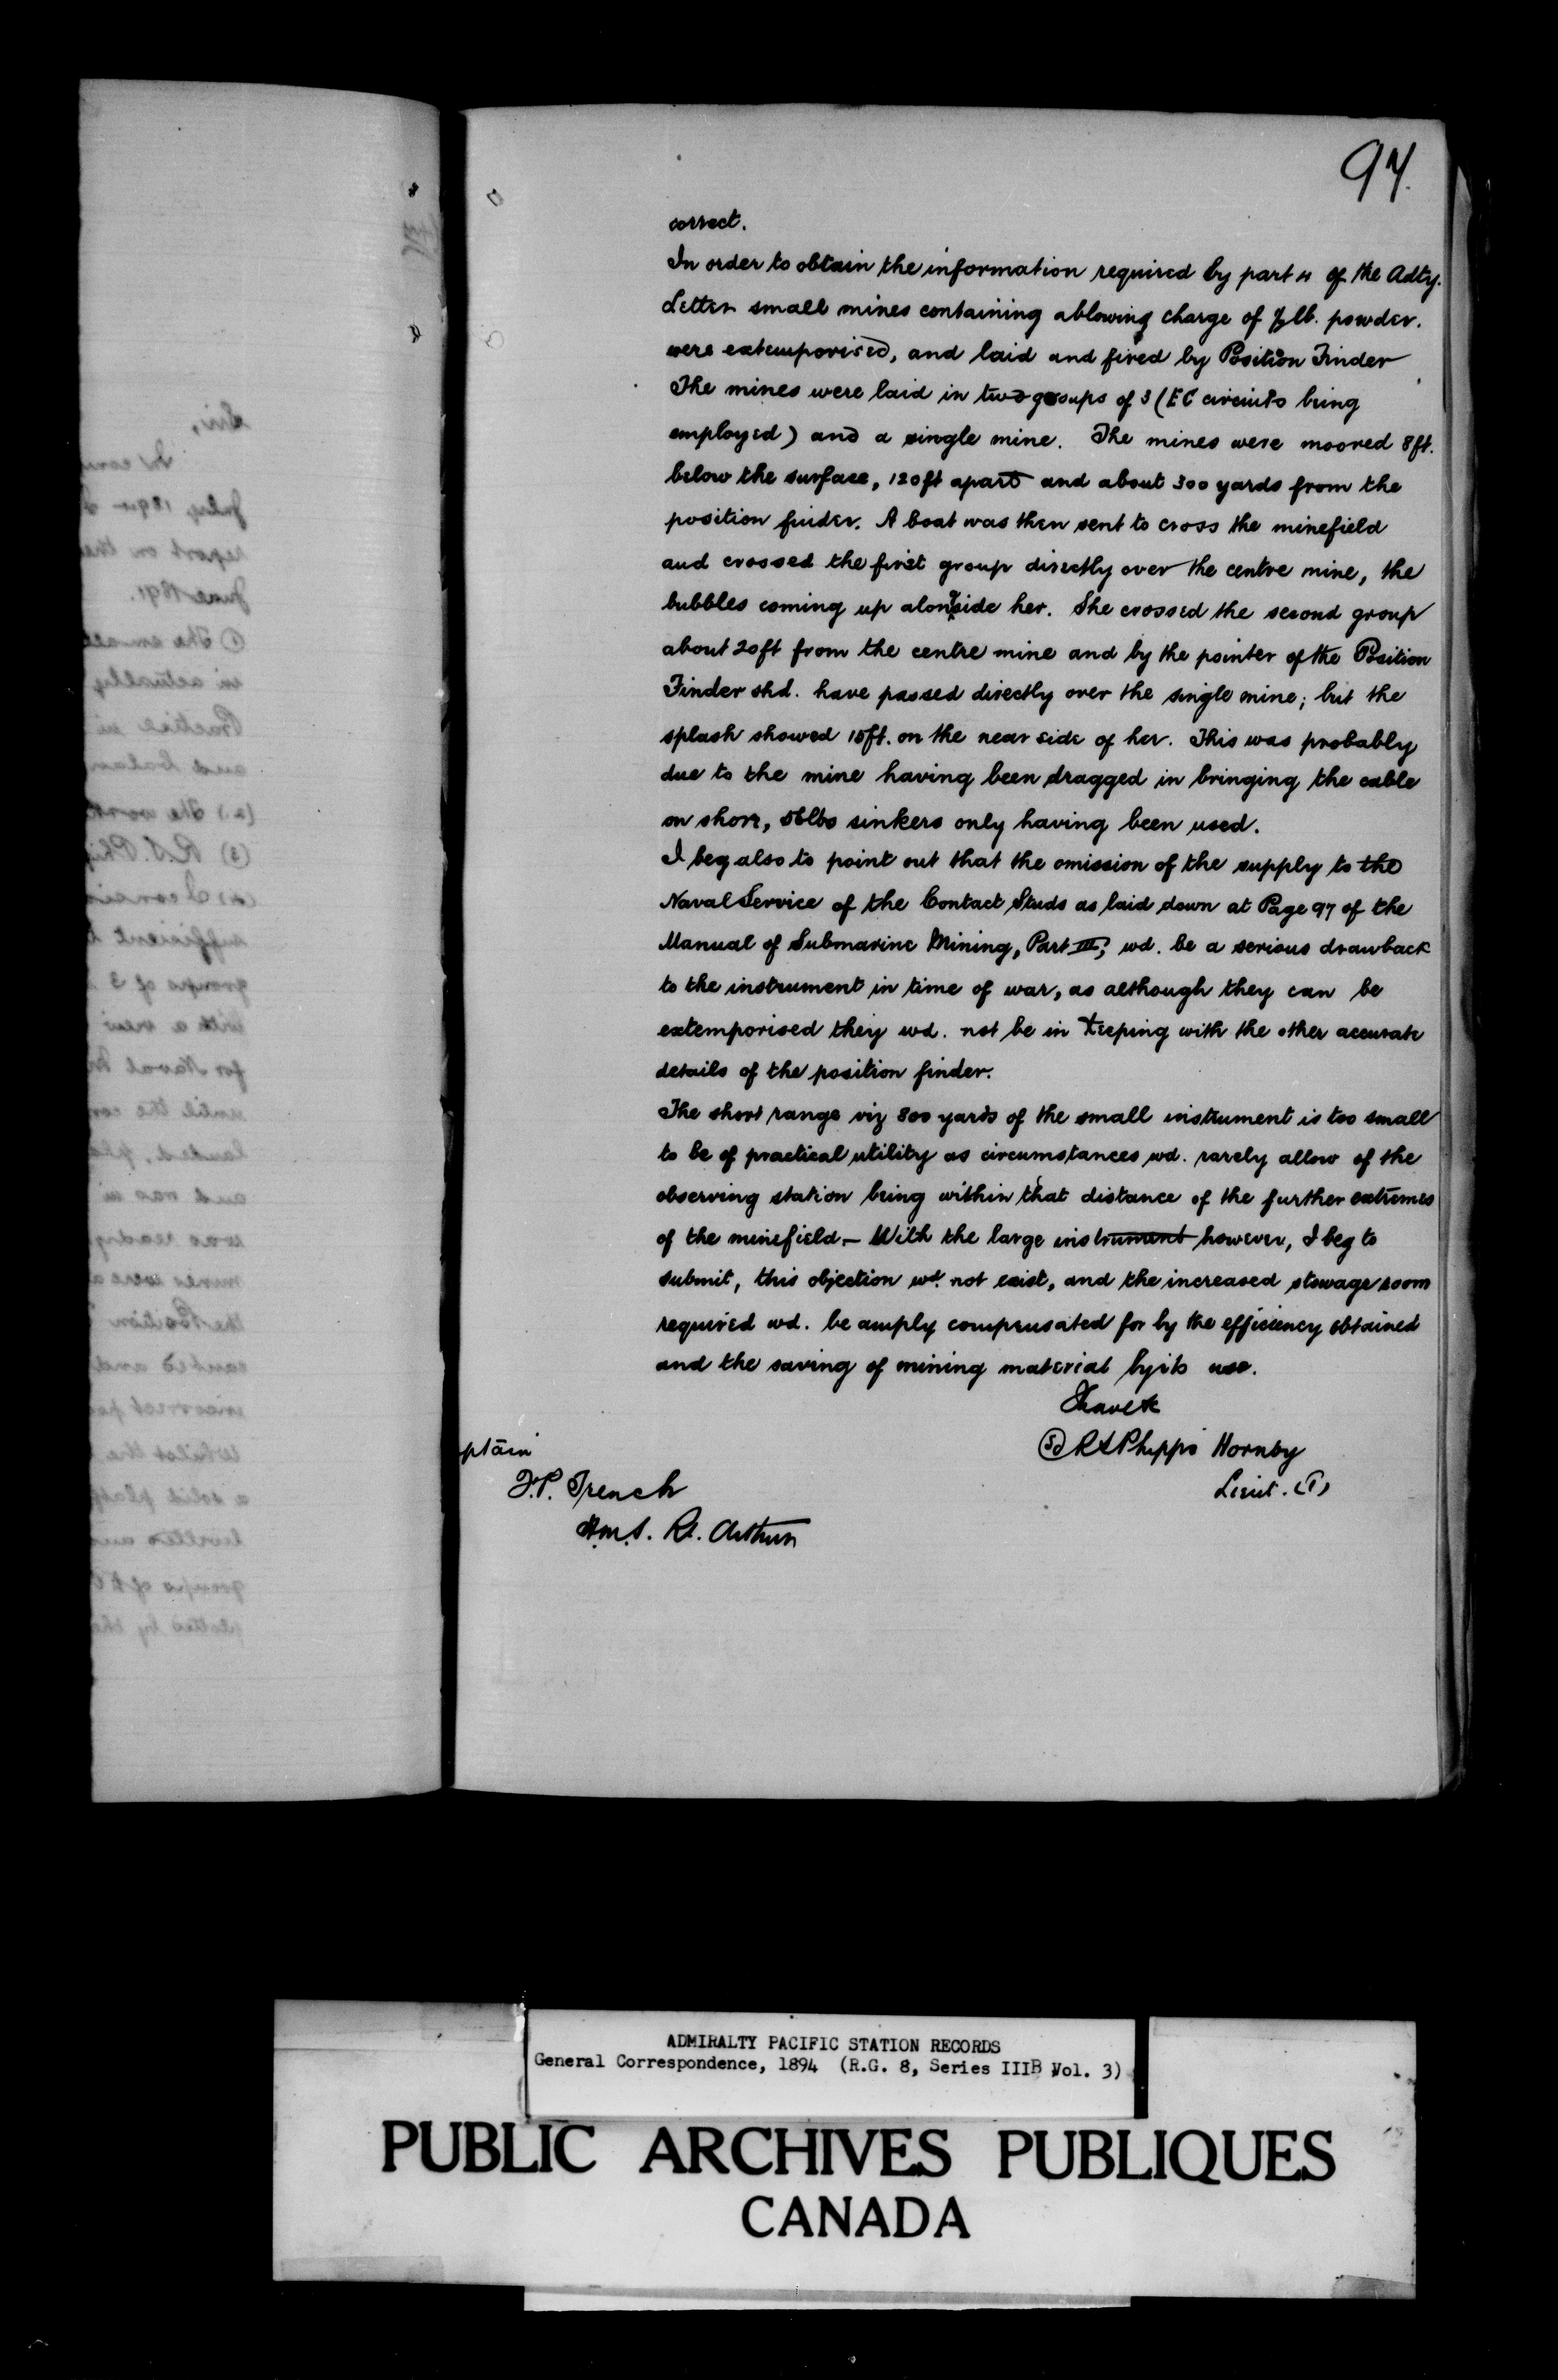 94.
correct.
In order to obtain the information required by part 4 of the Adty.
Letter small mines containing a blowing charge of ½ lb. powder.
were extemporised, and laid and fired by Position Finder
The mines were laid in two groups of 3 (EC circuits being
employed) and a single mine. The mines were moored 8ft.
below the surface, 120ft apart and about 300 yards from the
position finder. A boat was then sent to cross the minefield
and crossed the first group directly over the centre mine, the
bubbles coming up alongside her. She crossed the second group
about 20ft from the centre mine and by the pointer of the Position
Finder shd. have passed directly over the single mine; but the
splash showed 15ft. on the near side of her. This was probably
due to the mine having been dragged in bringing the cable
on shore, 56lbs sinkers only having been used.
I beg also to point out that the omission of the supply to the
Naval Service of the Contact Studs as laid down at Page 97 of the
Manual of Submarine Mining, Part III, wd. be a serious drawback
to the instrument in time of war, as although they can be
extemporised they wd. not be in keeping with the other accurate
details of the position finder.
The short range viz 800 yards of the small instrument is too small
to be of practical utility as circumstances wd. rarely allow of the
observing station being within that distance of the further extremes
of the minefield — With the large instrument however, I beg to
submit, this objection wd. not exist, and the increased stowage room
required wd. be amply compensated for by the efficiency obtained
and the saving of mining material by its use.
I have &c
(Sd) R S Phipps Hornby
Lieut. (T)
ptain
F.P. Trench
H.M.S. Rl. Arthur
Sir,
July 1890
report on the
June 1891.
(1) The small
in actually
Practice in
(2) The work
(3) R.S. Phip
sufficient
groups of 3
with a view
for Naval
until the
landed,
and was in
was ready
mines were
the Position
incorrect
Whilst the
a solid
groups of
plotted by the
ADMIRALTY PACIFIC STATION RECORDS
General Correspondence, 1894 (R.G. 8, Series IIIB Vol. 3)
PUBLIC ARCHIVES PUBLIQUES
CANADA